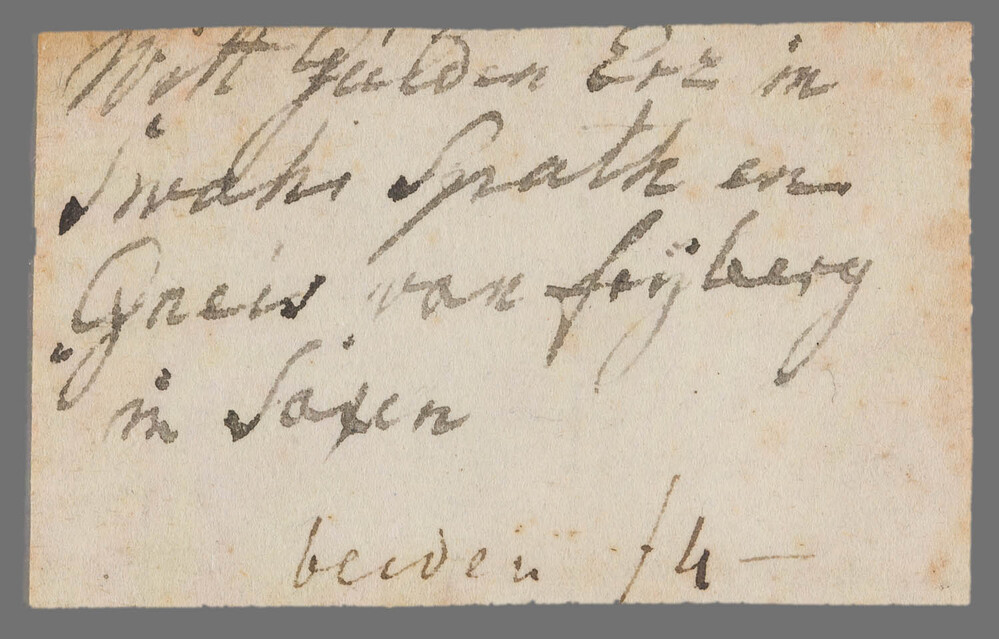 Witt Gülden Erz in
Swahr Spath en
Gneis von frÿberg
in Saxen
beiden f 4 —